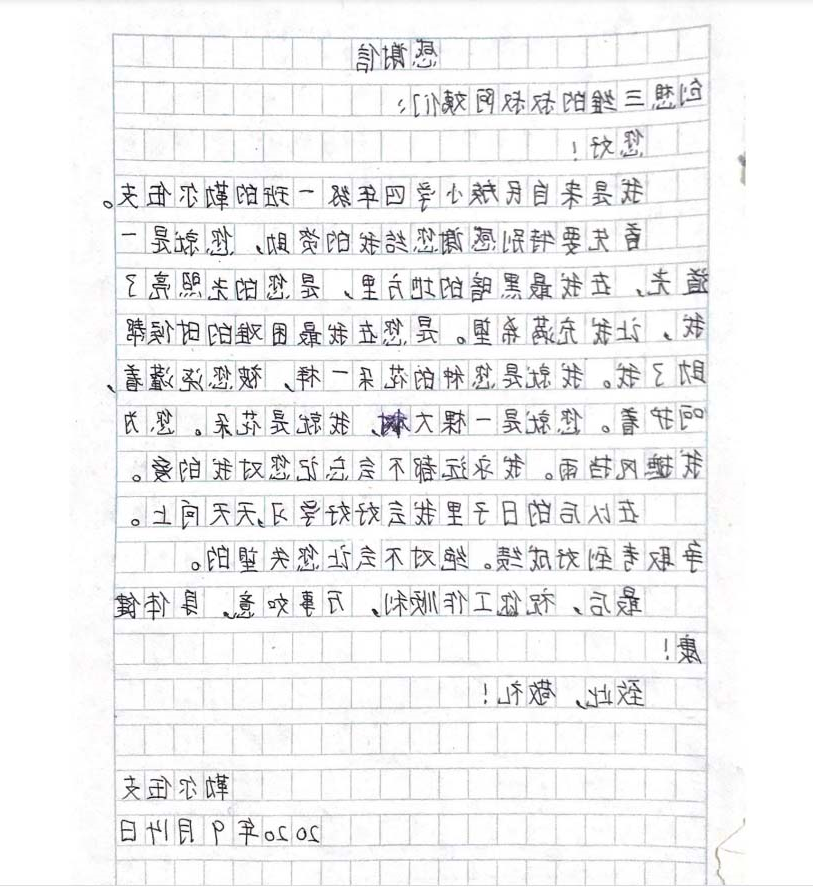 感谢信
创想三维的叔叔阿姨们：
您好！
我是来自民族小学四年级一班的勒尔伍支。
首先要特别感谢您给我的资助，您就是一
道光，在我最黑暗的地方里，是您的光照亮了
我，让我充满希望。是您在我最困难的时候帮
助了我。我就是您种的花朵一样，被您浇灌着、
呵护着。您就是一棵大树，我就是花朵。您为
我遮风挡雨。我永远都不会忘记您对我的爱。
在以后的日子里我会好好学习，天天向上。
争取考到好成绩。绝对不会让您失望的。
最后，祝您工作顺利，万事如意，身体健
康！
致此，敬礼！
勒尔伍支
2020年9月14日